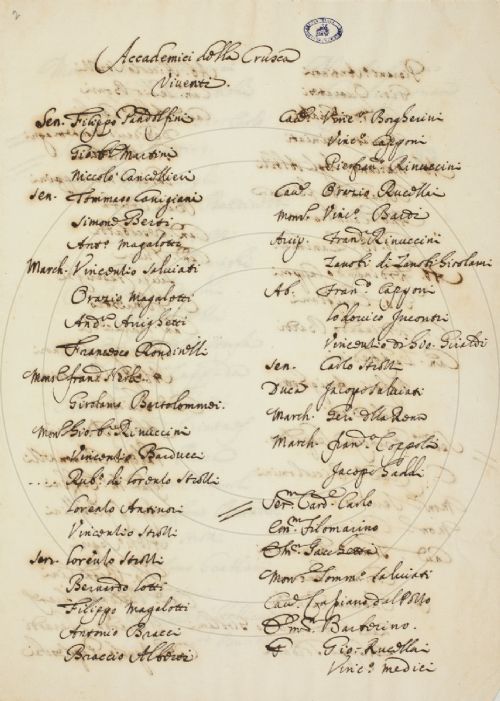 2
Accademici della Crusca
Viventi.
Sen. Filippo Pandolfini
Gio: Bta. Martini
Niccolò Cancellieri
Sen. Tommaso Canigiani
Simone Berti
Anto. Magalotti
March. Vincentio Salviati
Orazio Magalotti
Andra. Arrighetti
Francesco Rondinelli
Monsr. Franc. Nerli
Girolamo Bartolommei.
Rinuccini
Vincentio Barducci
... Rubo. di Lorenzo Strozzi
Lorenzo Antinori
Vincentio Strozzi
Sen. Lorenzo Strozzi
Bernardo Lotti
Filippo Magalotti
Antonio Bracci
Braccio Alberti
Cav. Vinco. Borgherini
Vinco. Capponi
Pierfranco. Rinuccini
Cav. Orazio Rucellai
Mons. Vinco. Bardi
Arcip. Franco. Rinuccini
Zanobi di Zanobi Girolami
Ab. Franco. Capponi
Lodovico Incontri
Vincentio di Giraldi
Sen. Carlo Strozzi
Duca Jacopo Salviati
March. Geri della Rena
March. Franco. Coppola
Jacopo Gaddi
Serm. Card. Carlo
Em. Filomarino
Sacchetti
Monsr. Tommo. Salviati
Cav. Cassiano dal Pozzo
Barberino.
Gio: Rucellai
Vinco. Medici